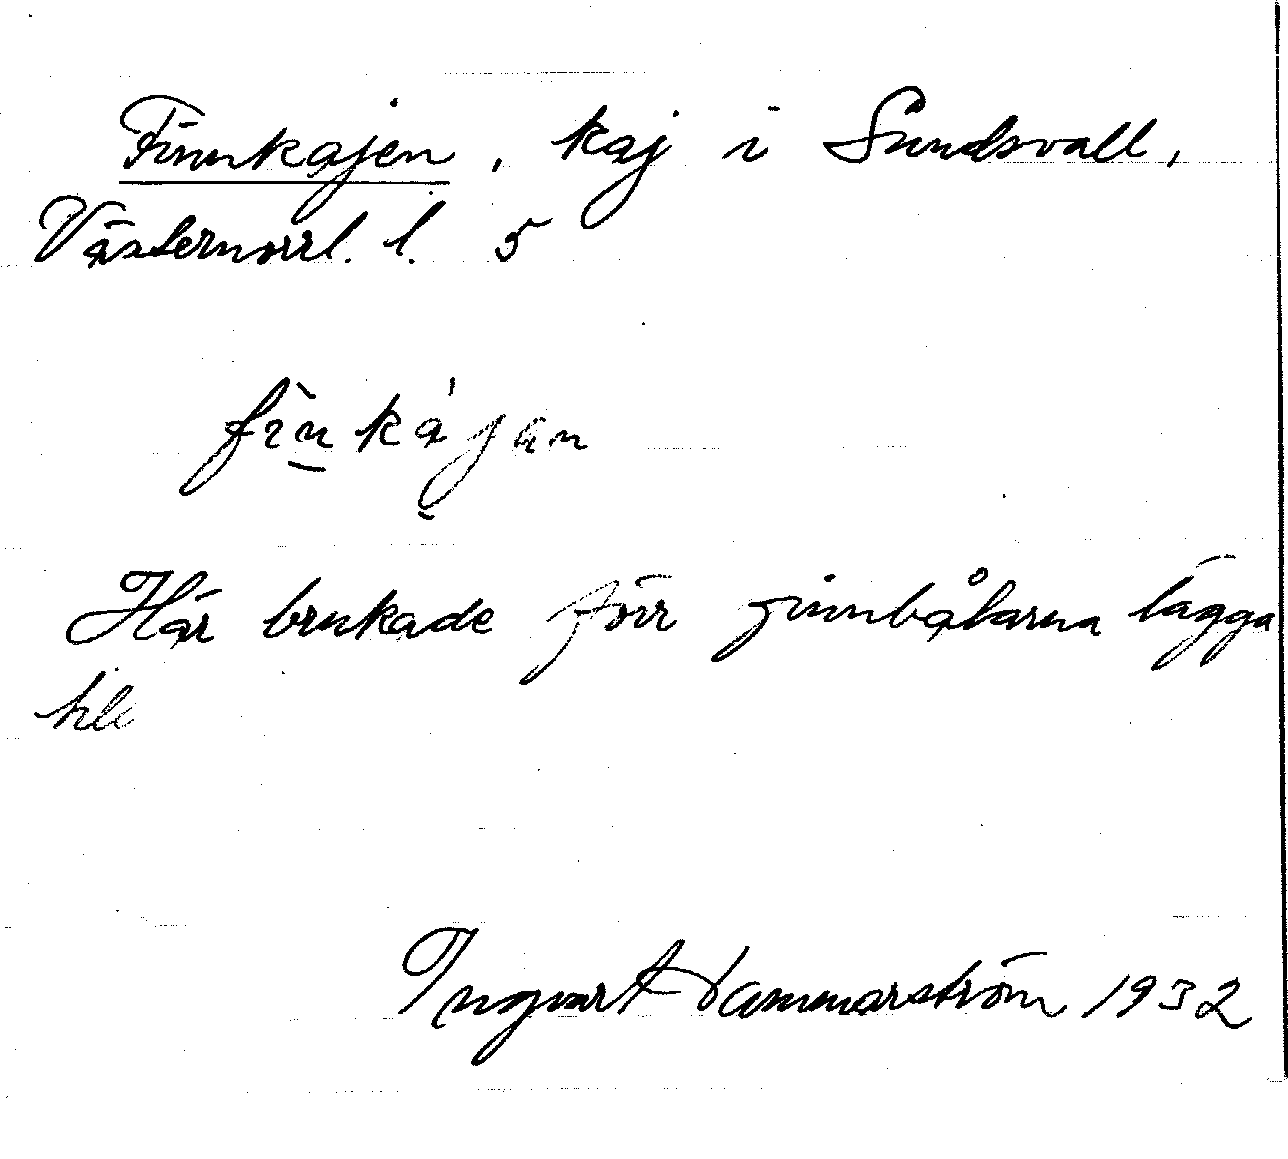 Finnkajen, kaj i Sundsvall,
Västernorrl. l. 5
fìnkájan
Här brukade förr finnbåtarna lägga
till
Ingwart Hammarström 1932